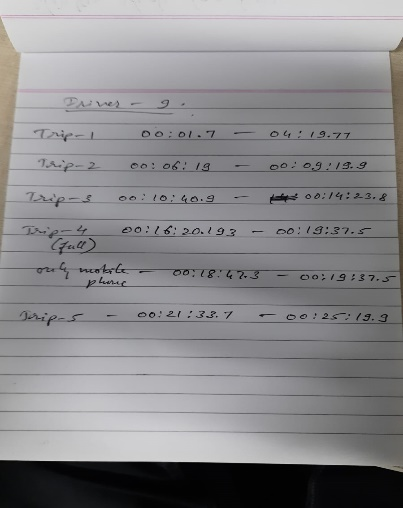 Driver - 9.
Trip-1 00:01.7 - 04:19.77
Trip-2 00:06:19 - 00:09:19.9
Trip-3 00:10:40.9 - 00:14:23.8
Trip-4 00:16:20.193 - 00:19:37.5
(full)
only mobile - 00:18:47.3 - 00:19:37.5
phone
Trip-5 - 00:21:33.7 - 00:25:19.9